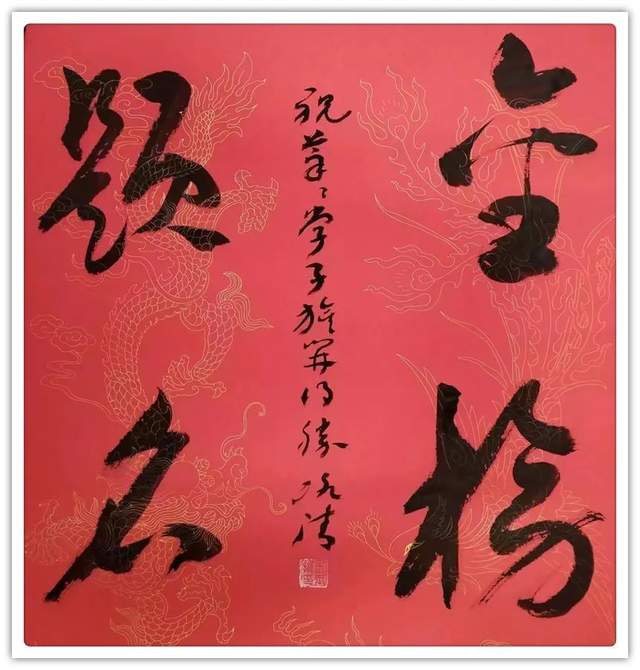 金榜
题名
祝莘莘学子旗开得胜